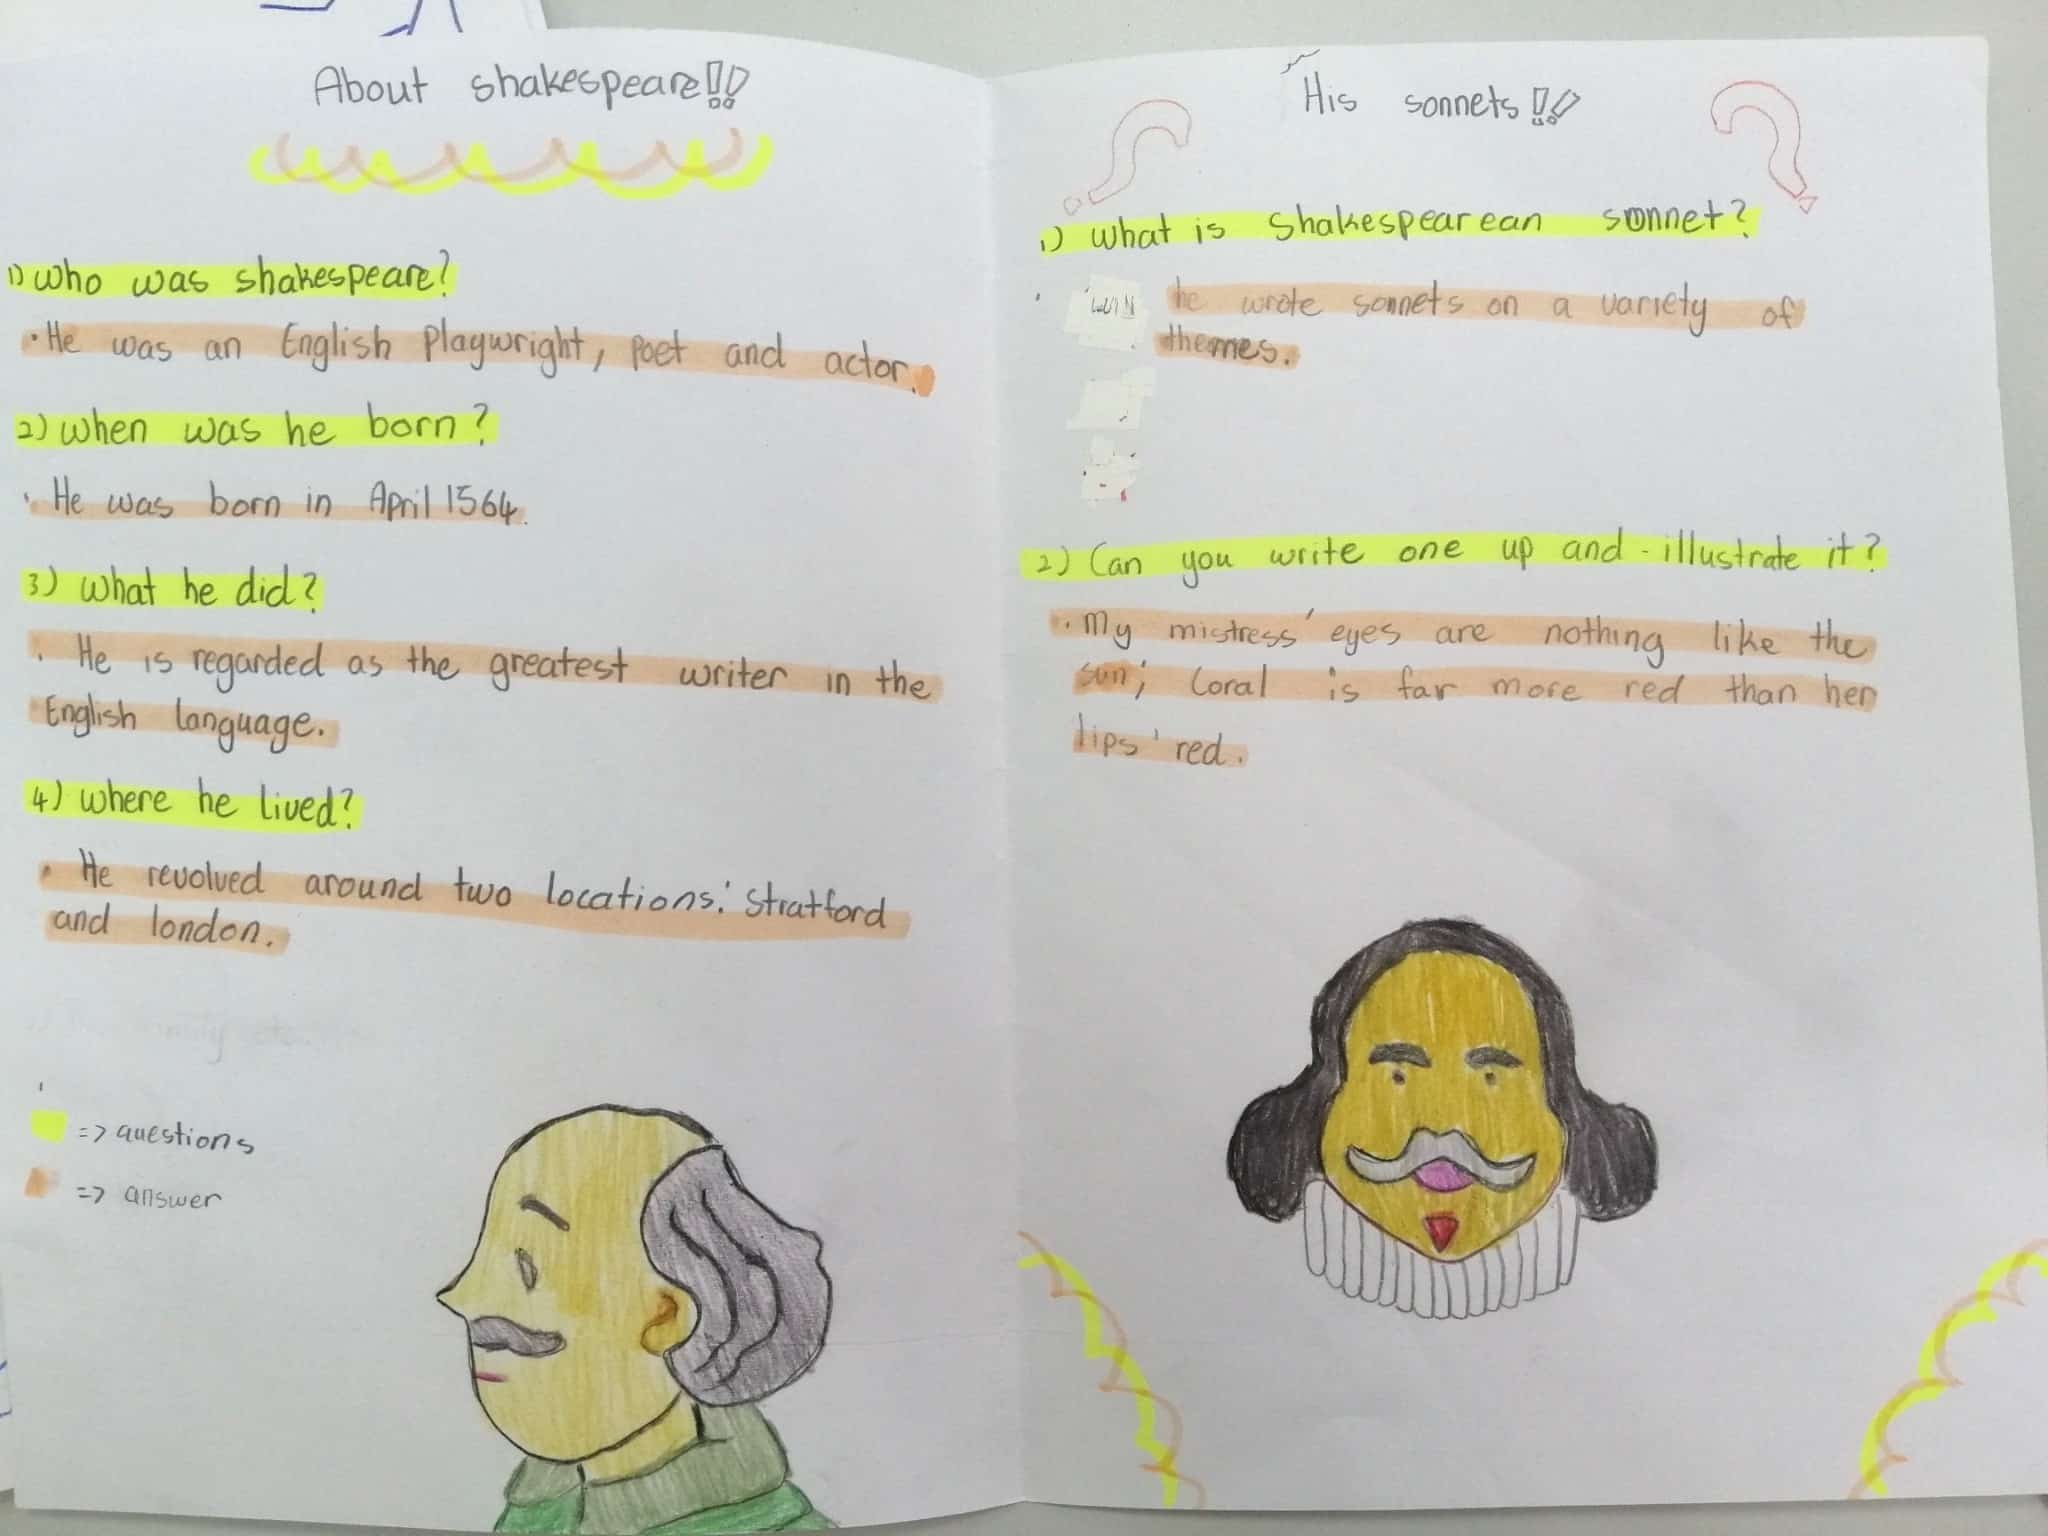 About shakespeare!!
1) Who was shakespeare?
· He was an English Playwright, poet and actor.
2) When was he born?
· He was born in April 1564.
3) What he did?
· He is regarded as the greatest writer in the
English language.
4) Where he lived?
· He revolved around two locations: Stratford
and london.
=> questions
=> answer
His sonnets!!
1) What is Shakespearean sonnet?
· he wrote sonnets on a variety of
themes.
2) Can you write one up and - illustrate it?
· My mistress' eyes are nothing like the
sun; Coral is far more red than her
lips' red.